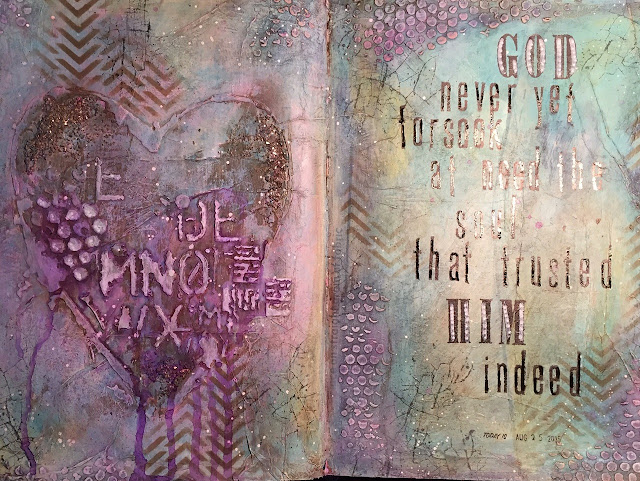 E
GOD
never yet
forsook
at need the
soul
that trusted
HIM
indeed
TODAY IS AUG 2 5 2015